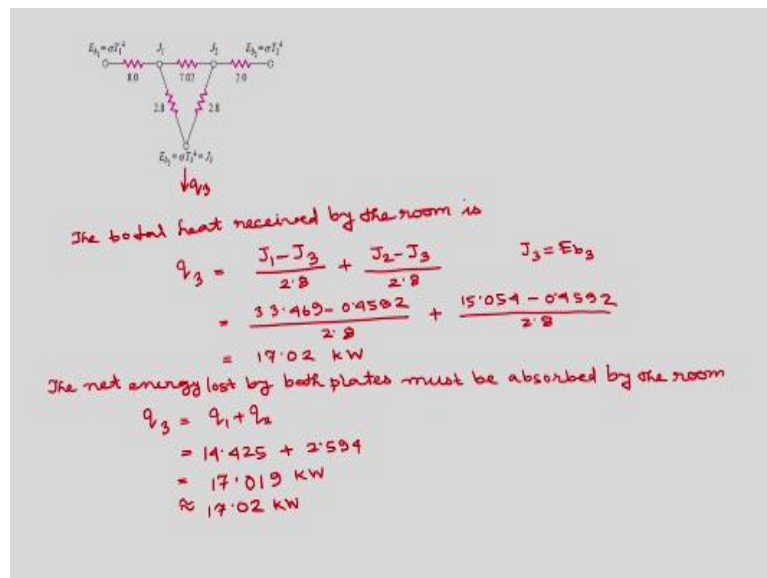 E_b1 = σT₁⁴ J₁ J₂ E_b2 = σT₂⁴
8.0 7.02 2.0
2.8 2.8
E_b3 = σT₃⁴ = J₃
q₃
The total heat received by the room is
q₃ = (J₁-J₃)/2.8 + (J₂-J₃)/2.8 J₃ = Eb₃
= (33.469-0.4592)/2.8 + (15.054-0.4592)/2.8
= 17.02 kW
The net energy lost by both plates must be absorbed by the room
q₃ = q₁+q₂
= 14.425 + 2.594
= 17.019 kW
≈ 17.02 kW